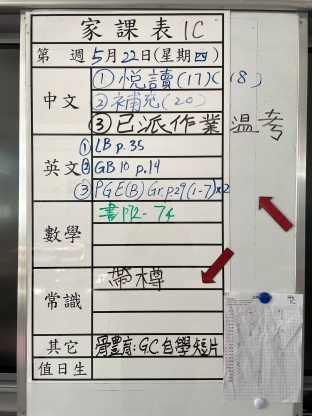 家課表 1C
第 週 5月22日(星期四)
中文 ①悅讀(17)(18)
②補充(20)
③已派作業 溫考
英文 ①LB p.35
②GB 10 p.14
③PGE(B) Gr.p.29(1-7)x2
數學 書p.72-74
常識 帶樽
其它 體育:G.C自學短片
值日生